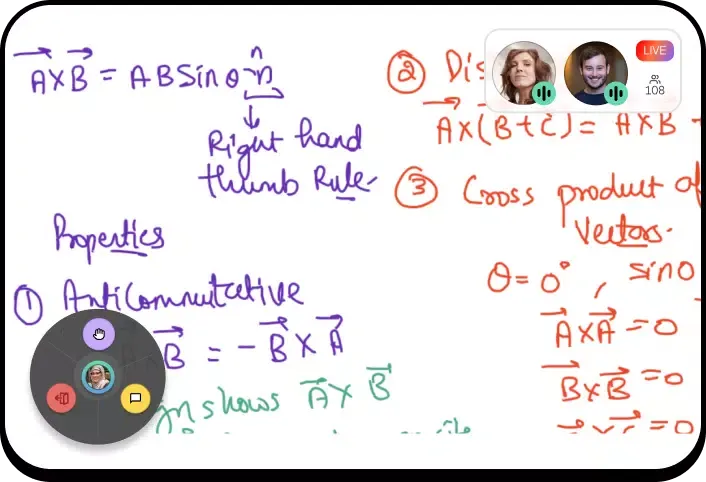 A⃗ × B⃗ = A B Sin θ n̂
Right hand
thumb Rule
Properties
① Anticommutative
B⃗ = - B⃗ × A⃗
shows A⃗ × B⃗
②
A⃗ × (B⃗ + C⃗) = A × B
③ Cross product of
Vectors.
θ = 0° , sin 0
A⃗ × A⃗ = 0
B⃗ × B⃗ = 0
= 0
LIVE
108